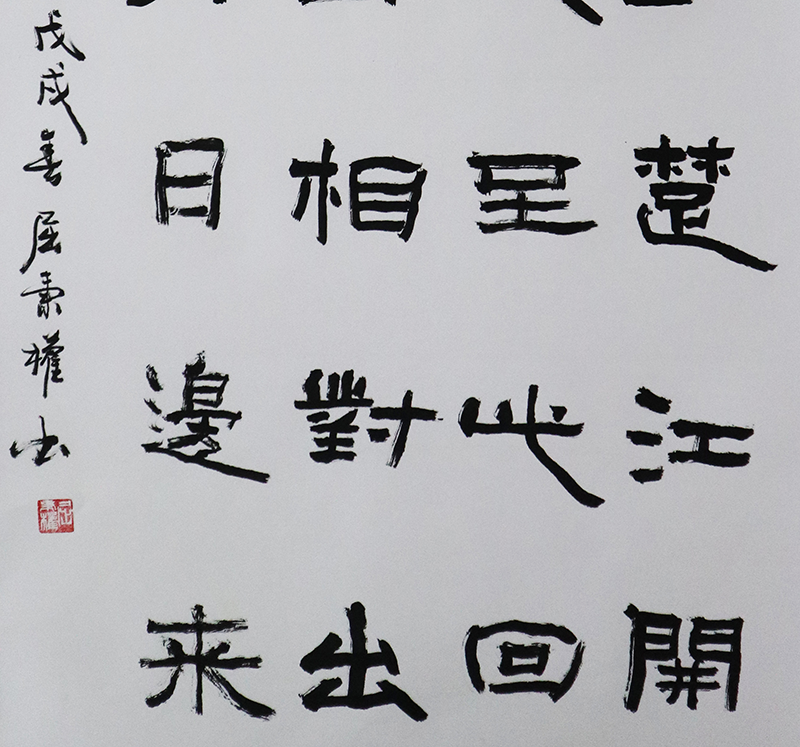 楚江開
至此回
相對出
日邊来
戊戌春屈權书